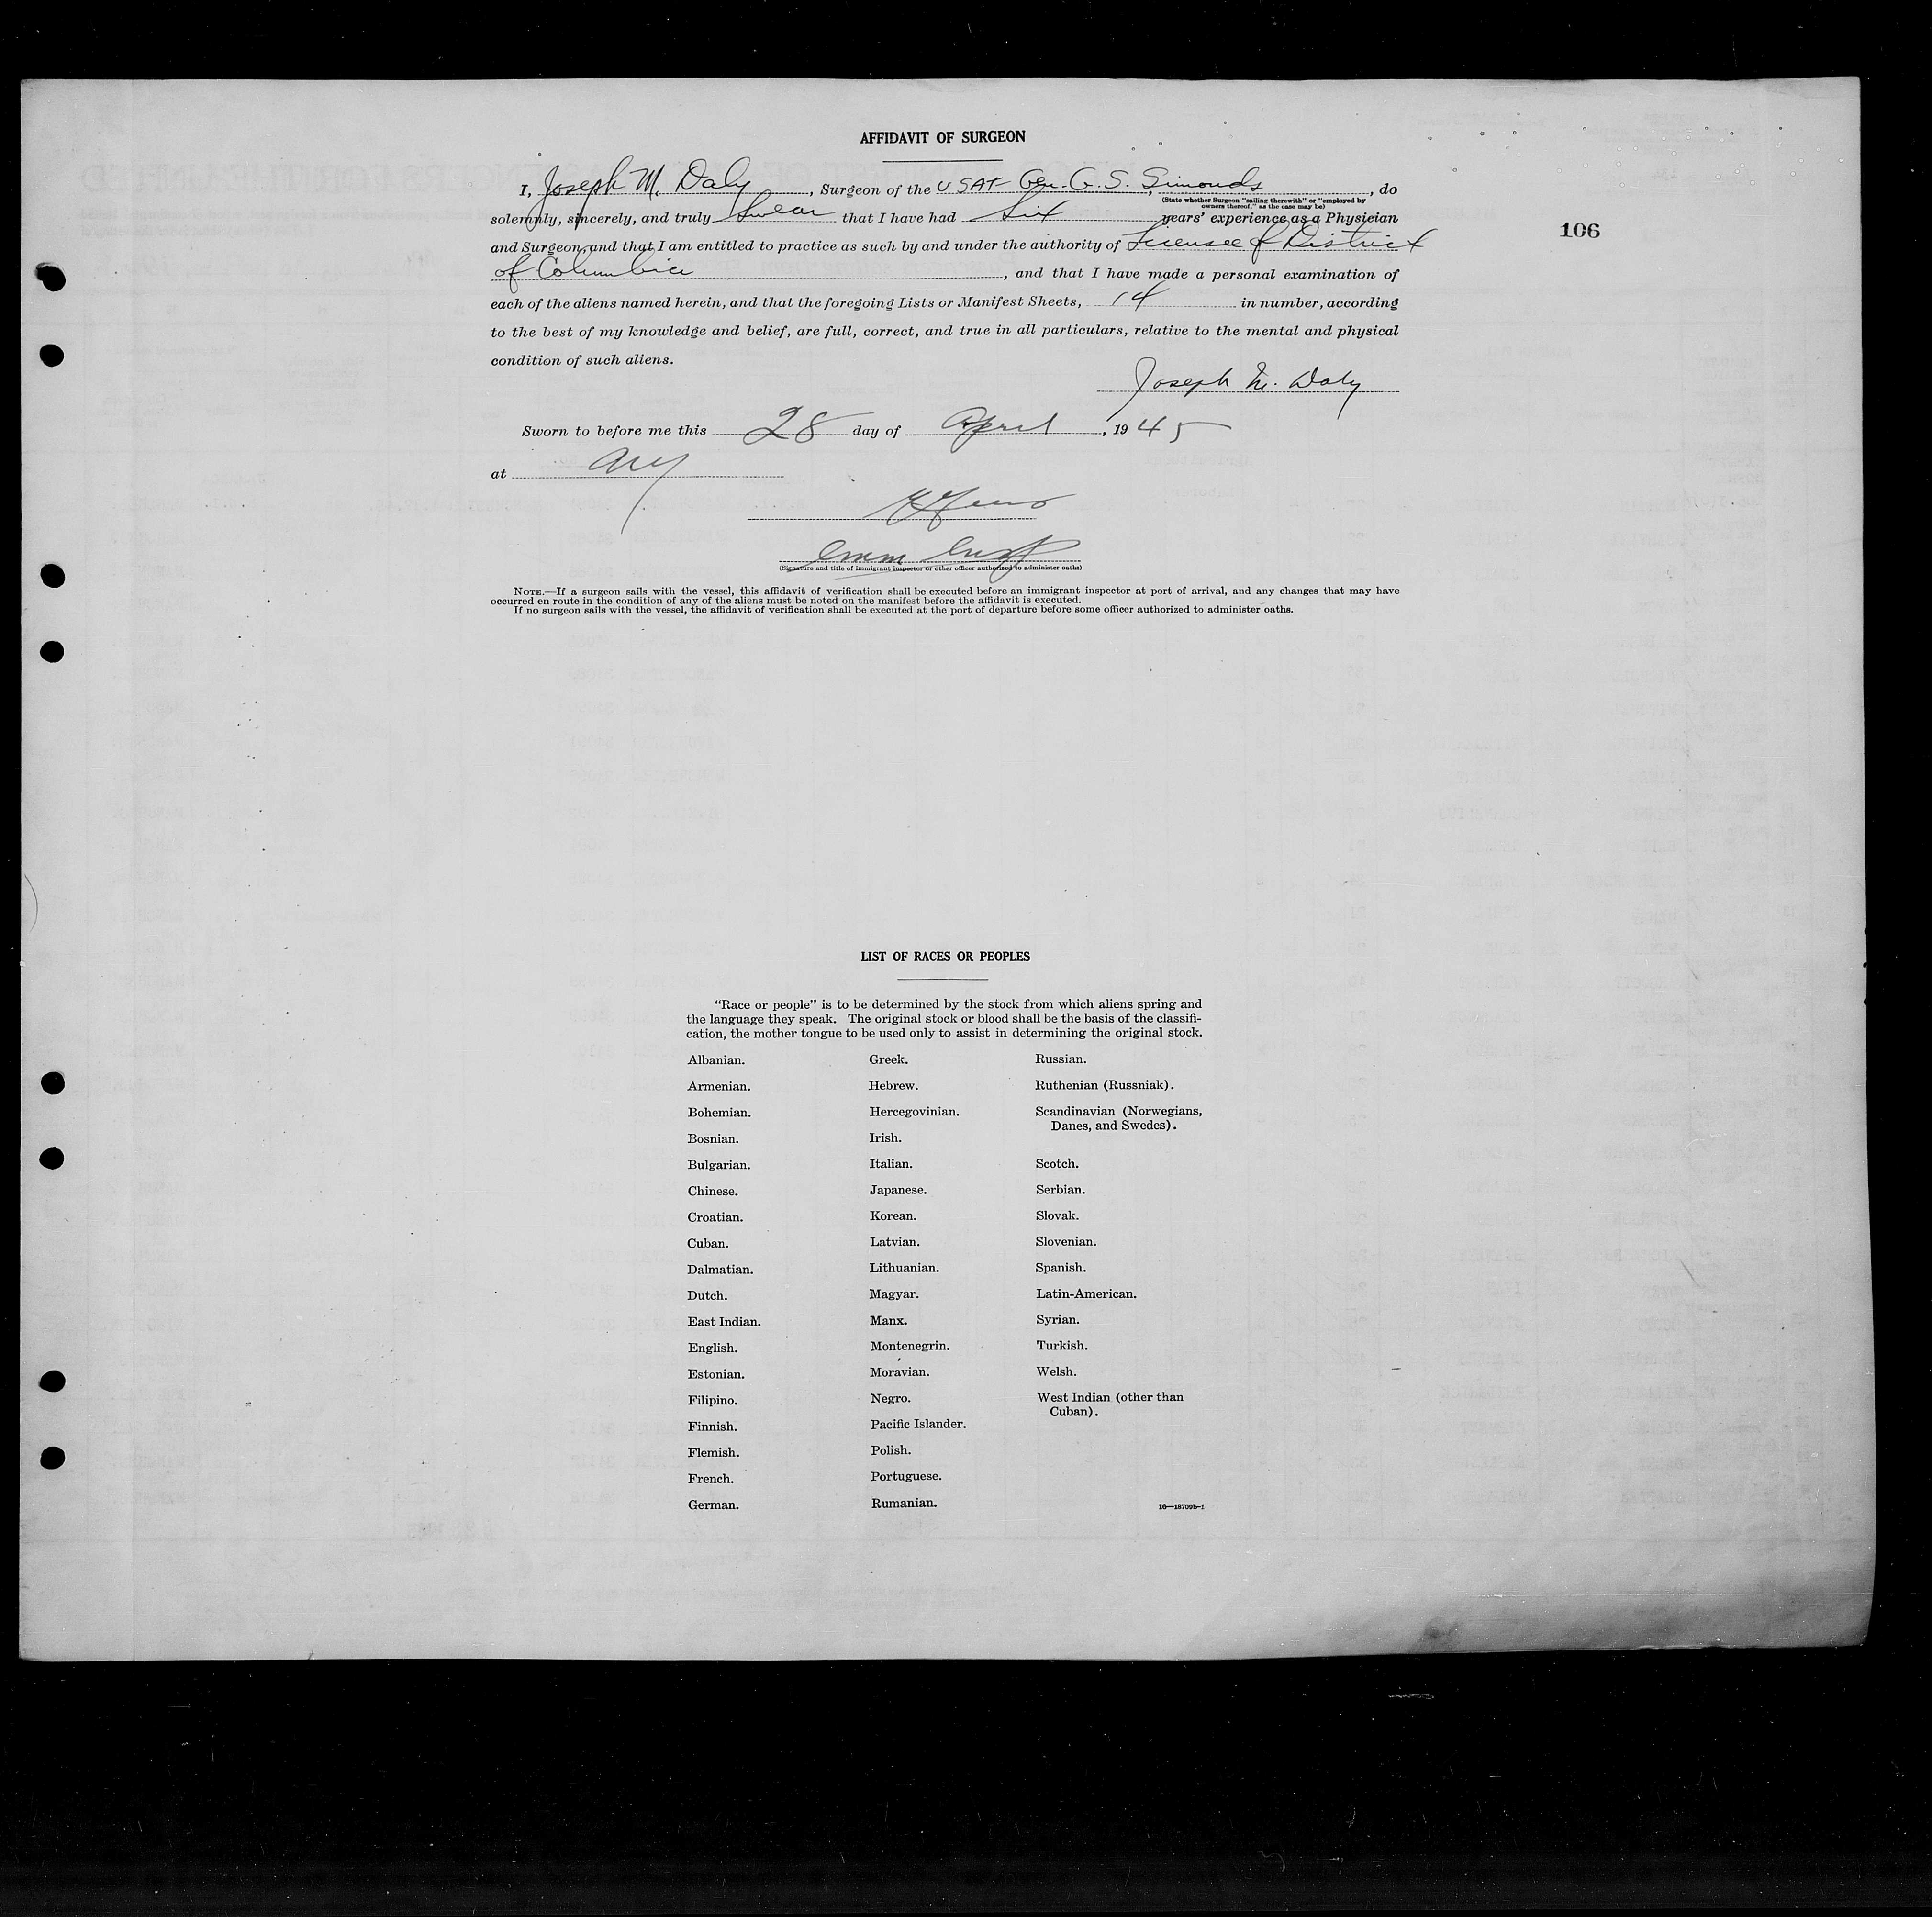 AFFIDAVIT OF SURGEON
I, Joseph M. Daly, Surgeon of the USAT Gen. G. S. Simonds, do
(State whether Surgeon "sailing therewith" or "employed by
owners thereof," as the case may be)
solemnly, sincerely, and truly Swear that I have had Six years' experience as a Physician
106
and Surgeon, and that I am entitled to practice as such by and under the authority of Licensee of District
of Columbia, and that I have made a personal examination of
each of the aliens named herein, and that the foregoing Lists or Manifest Sheets, 14 in number, according
to the best of my knowledge and belief, are full, correct, and true in all particulars, relative to the mental and physical
condition of such aliens.
Joseph M. Daly
Sworn to before me this 28 day of April, 1945
at NY
Imm Insp
(Signature and title of immigrant inspector or other officer authorized to administer oaths)
NOTE.—If a surgeon sails with the vessel, this affidavit of verification shall be executed before an immigrant inspector at port of arrival, and any changes that may have
occurred en route in the condition of any of the aliens must be noted on the manifest before the affidavit is executed.
If no surgeon sails with the vessel, the affidavit of verification shall be executed at the port of departure before some officer authorized to administer oaths.
LIST OF RACES OR PEOPLES
"Race or people" is to be determined by the stock from which aliens spring and
the language they speak. The original stock or blood shall be the basis of the classifi-
cation, the mother tongue to be used only to assist in determining the original stock.
Albanian.
Armenian.
Bohemian.
Bosnian.
Bulgarian.
Chinese.
Croatian.
Cuban.
Dalmatian.
Dutch.
East Indian.
English.
Estonian.
Filipino.
Finnish.
Flemish.
French.
German.
Greek.
Hebrew.
Hercegovinian.
Irish.
Italian.
Japanese.
Korean.
Latvian.
Lithuanian.
Magyar.
Manx.
Montenegrin.
Moravian.
Negro.
Pacific Islander.
Polish.
Portuguese.
Rumanian.
Russian.
Ruthenian (Russniak).
Scandinavian (Norwegians,
Danes, and Swedes).
Scotch.
Serbian.
Slovak.
Slovenian.
Spanish.
Latin-American.
Syrian.
Turkish.
Welsh.
West Indian (other than
Cuban).
16—18709b-1